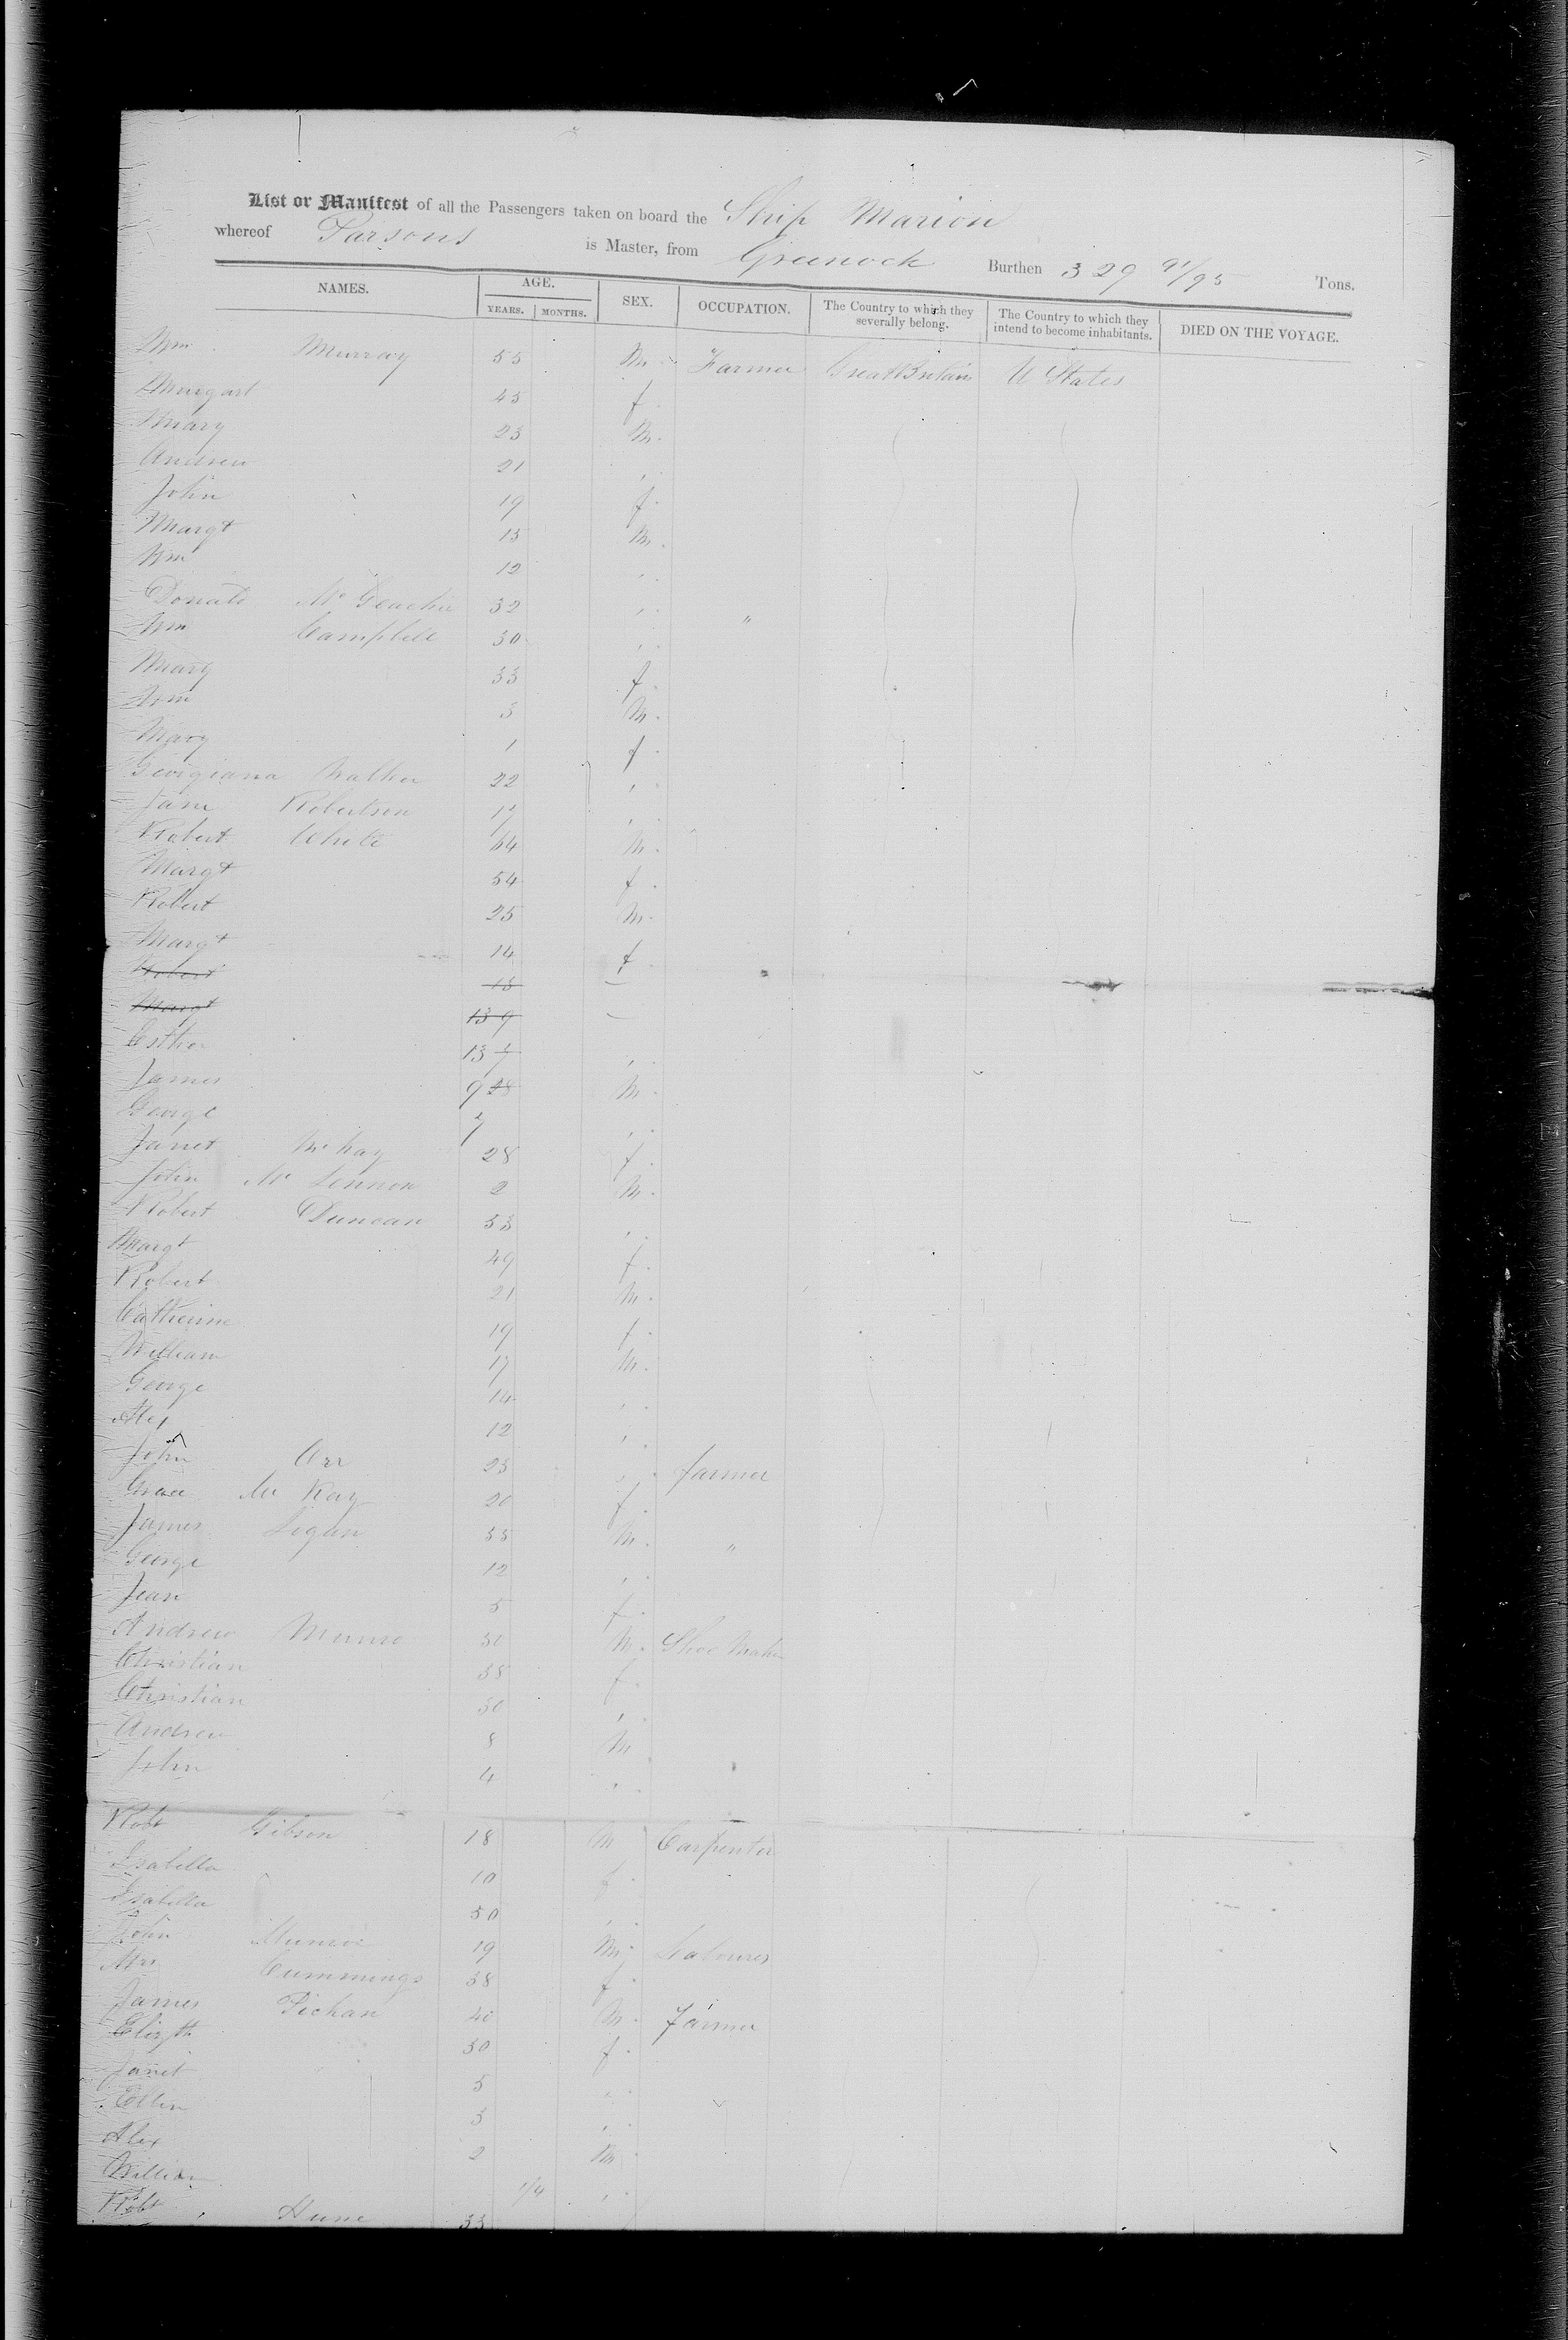 List or Manifest of all the Passengers taken on board the Ship Marion
whereof Parsons is Master, from Greenock Burthen 329 91/95 Tons.
NAMES. AGE. YEARS. MONTHS. SEX. OCCUPATION. The Country to which they severally belong. The Country to which they intend to become inhabitants. DIED ON THE VOYAGE.
Wm Murray 55 M Farmer Great Britain U States
Margart 45 f
Mary 23 M
Andrew 21 "
John 19 f
Margt 15 M
Wm 12 "
Donald McGeachie 32 " "
Wm Campbell 30 "
Mary 33 f
Wm 3 M
Mary 1 f
Georgiana Walker 22 "
Jane Robertson 17 "
Robert White 64 M
Margt 54 f
Robert 25 M
Margt 14 f
Robert 18
Margt 13 9
Esther 13 7 "
James 9 28 M
George 7 "
Janet McKay 28 f
John Mc Lennon 2 M
Robert Duncan 53 "
Margt 49 f
Robert 21 M
Catherine 19 f
William 17 M
George 14 "
Alex 12 "
John Orr 23 " farmer
Grace Mc Kay 20 f
James Logan 35 M "
George 12 "
Jean 5 f
Andrew Munro M Shoe Maker
Christian 38 f
Christian 30 "
Andrew 8 M
John 4 "
Robt Gibson 18 M Carpenter
Isabella 10 f
Isabella 50 "
John Munroe 19 M Labourer
Mrs Cummings 38 f
James 40 M Farmer
Elizth 30 f
Janet 5 "
Ellen 3 "
Alex 2 M
William 1/4 "
Robt Hume 33